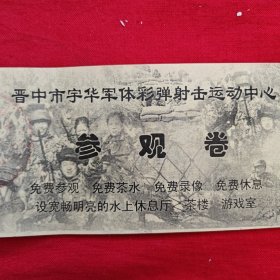 晋中市宇华军体彩弹射击运动中心
参观卷
免费参观 免费茶水 免费录像 免费休息
设宽畅明亮的水上休息厅 茶楼 游戏室